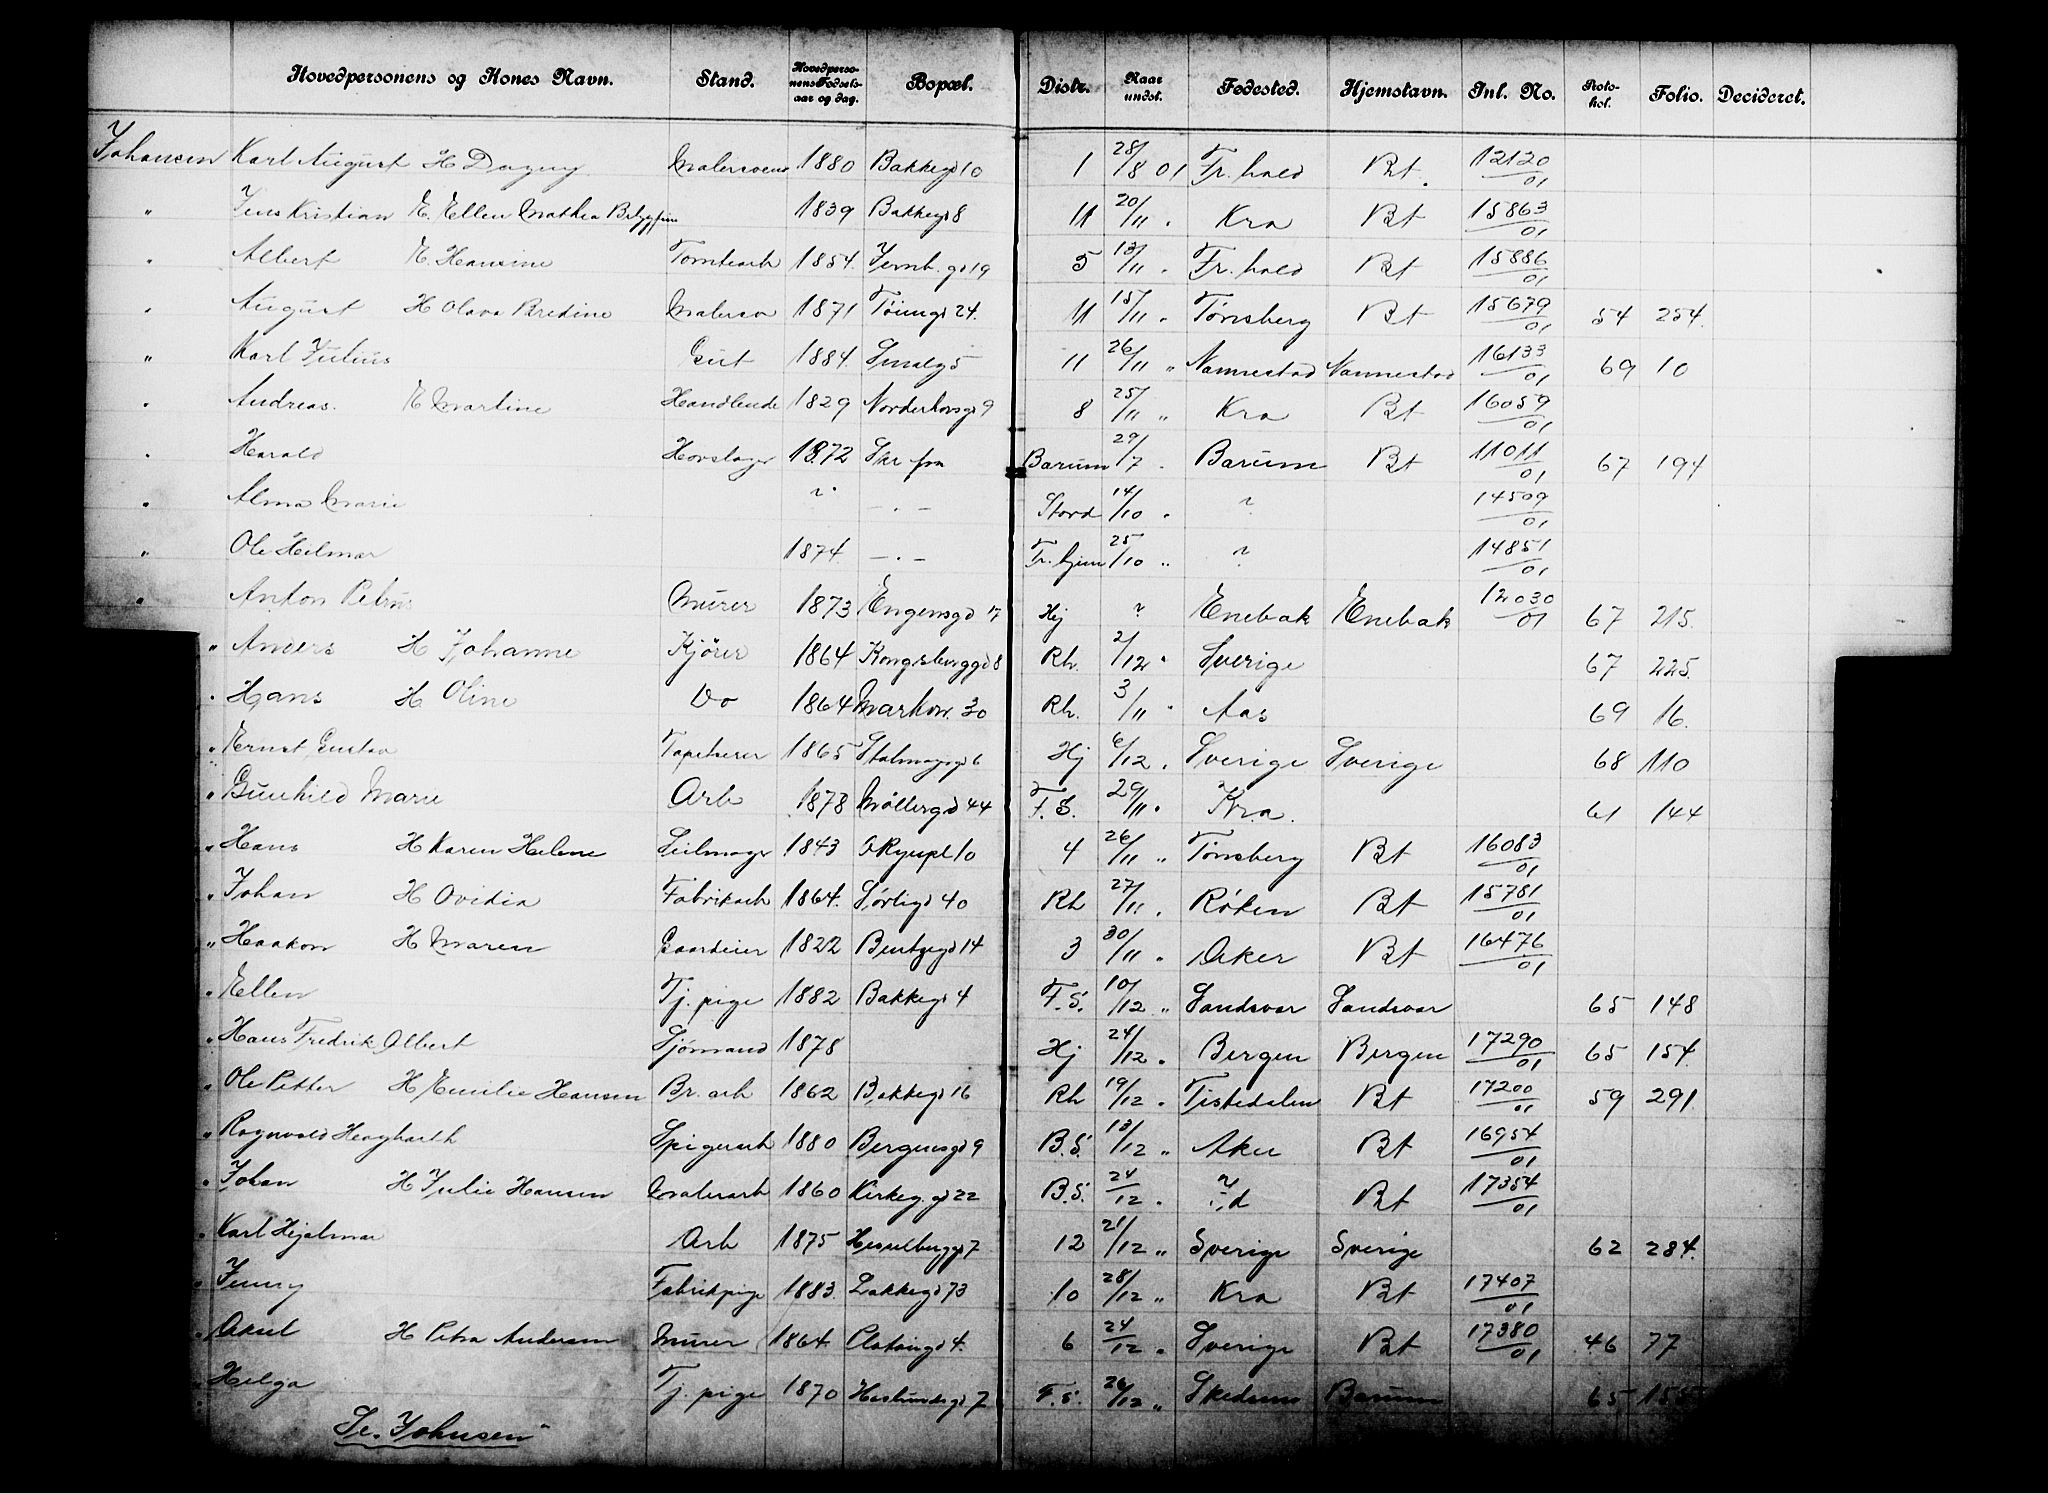 Hovedpersonens og Kones Navn. Stand. Hovedpersonens Fødselsaar og dag. Bopæl. Distr. Naar undst. Fødested. Hjemstavn. Inl. No. Protokol. Folio. Decideret.
Johansen Karl August H Dagny Malersvend 1880 Bakkegd 10 1 28/8 01 Fr.hald Bt. 12120/01
" Jens Kristian E. Ellen Mathea 1839 Bakkegd 8 11 20/11 " Kra Bt 15863/01
" Albert E. Hansine Tomtearb 1854 Jernb.gd 19 5 13/11 " Fr.hald Bt 15886/01
" August H Olava Bredine Malersv 1871 Tøiengd 24. 11 15/11 " Tønsberg Bt 15679/01 54 254.
" Karl Julius Gut 1884. Smalg 5 11 26/11 " Nannestad Nannestad 16133/01 69 10
" Andreas. E Martine Handlende 1829 Norderhovsgd 9 8 25/11 " Kra Bt 16059/01
" Harald Hovslager 1872 Skr fra Barum 29/7 " Barum Bt 11011/01 67 194
" Alma Marie ? — " — Stord 14/10 " ? 14509/01
" Ole Hilmar 1874 — " — Tr.hjem 25/10 " ? 14851/01
" Anton Petrus Murer 1873 Engensgd 17 Hj ? Enebak Enebak 12030/01 67 215.
" Anders H Johanne Kjører 1864 Kongsberggd 8 Rh. 2/12 " Sverige 67 225.
" Hans H Oline Do 1864 Markov. 30 Rh. 3/11 " Aas 69 16.
" Ernst Gustav Tapetserer 1865 Stolmagergd 6 Hj 6/12 " Sverige Sverige 68 110
" Gunhild Marie Arb 1878 Møllergd 44 F.S. 29/11 " Kra. 61 144
" Hans H Karen Helene Seilmager 1843 A Ryespl 10 4 26/11 " Tønsberg Bt 16083/01
" Johan H Ovidia Fabrikarb 1864. Sørligd 40 Rh 27/11 " Røken Bt 15781/01
" Haakon H Maren Gaardeier 1822 Bentsegd 14 3 30/11 " Aker Bt 16476/01
" Ellen Tj. pige 1882 Bakkegd 4 F.S. 10/12 " Sandsvær Sandsvær 65 148
" Hans Fredrik Albert Sjømand 1878 Hj 24/12 " Bergen Bergen 17290/01 65 154.
" Ole Petter H Emilie Hansen Br. arb 1862 Bakkegd 16 Rh 19/12 " Tistedalen Bt 17200/01 59 291.
" Ragnvald Hagbarth Spigerarb 1880 Bergensgd 9 B.S. 13/12 " Aker Bt 16954/01
" Johan H Julie Hansen Malerarb 1860 Kirkeg.gd 22 B.S. 24/12 " ? Bt 17354/01
" Karl Hjalmar Arb 1875 Hesselberggd 7 12 21/12 " Sverige Sverige 62 284.
" Jenny Fabrikpige 1883. Lakkegd 73 10 28/12 " Kra Bt 17407/01
" Aksel H Petra Andersen Murer 1864. Platougd 4. 6 24/12 " Sverige Bt 17380/01 46 77
" Helga Tj. pige 1870 7 F.S. 26/12 " Skedsmo Barum 65
Se. Johnsen"